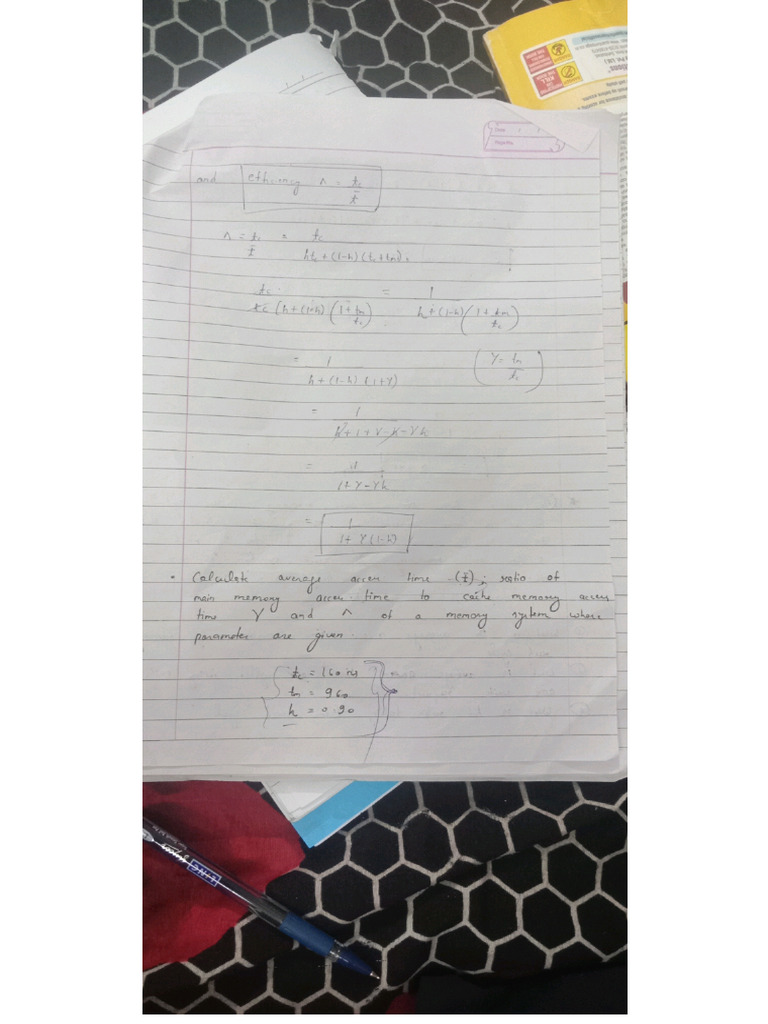 and efficiency Λ = tc / t̄
Λ = tc / t̄ = tc / htc + (1-h) (tc+tm)
tc / tc (h + (1-h) (1 + tm/tc) = 1 / h + (1-h) (1 + tm/tc)
= 1 / h + (1-h) (1+γ) (γ = tm/tc)
= 1 / h + 1 + γ - h - γh
= 1 / 1 + γ - γh
= 1 / 1 + γ(1-h)
• Calculate average accen time (t̄), ratio of
main memory accen time to cache memory accen
time γ and Λ of a memory system where
parameter are given.
tc = 160 ns
tm = 960
h = 0.90
LINC